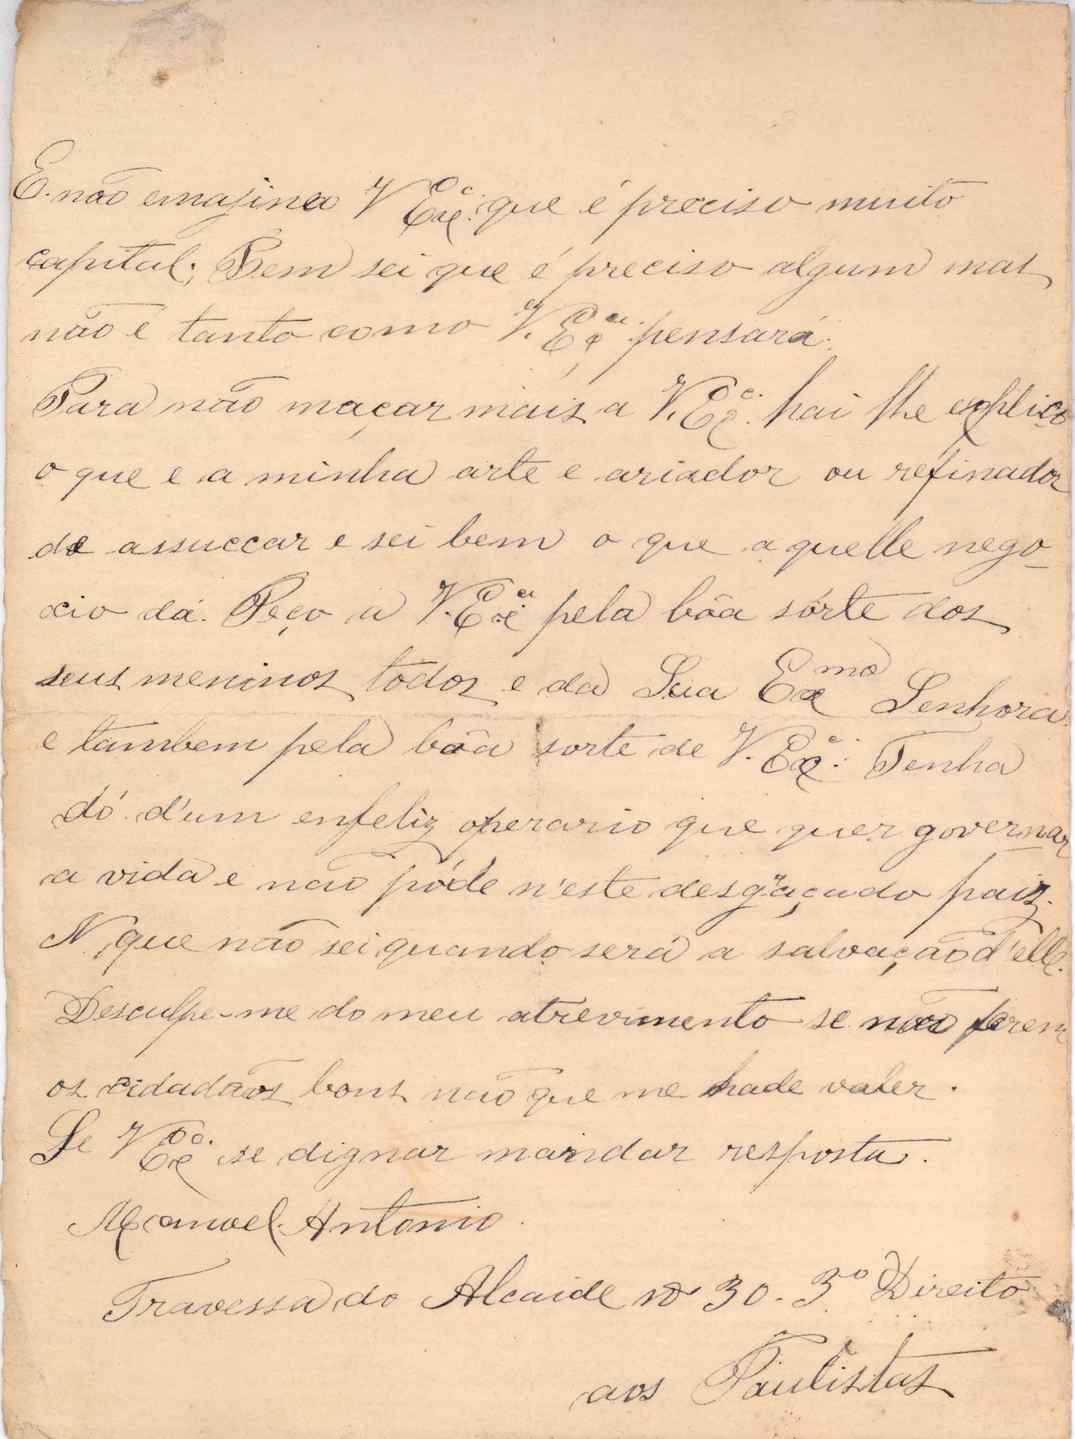 E não emajina V Exc.ª que é preciso muito
capital; Bem sei que é preciso algum mas
não é tanto como V. Ex.cia pensará.
Para não maçar mais a V. Exc.ª hai lhe explico
o que e a minha arte e ariador ou refinador
de assuccar e sei bem o que aquelle nego-
cio dá. Peço a V. Ex.cia pela bôa sórte dos
seus meninos todos e da Sua Exma Senhora
e tambem pela bôa sorte de V. Exc.ª Tenha
dó d'um enfeliz operario que quer governar
a vida e não póde n'este desgraçado paiz.
N. que não sei quando será a salvação d'elle.
Desculpe-me do meu atrevimento se não forem
os cidadãos bons não que me hade valer.
Se V Exc.ª se dignar mandar resposta.
Manoel Antonio.
Travessa do Alcaide nº 30. 3º Direito
aos Paulistas